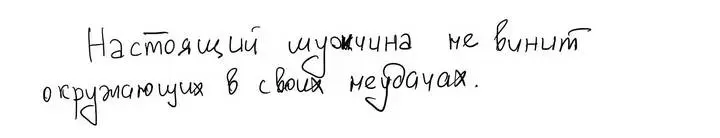 Настоящий мужчина не винит
окружающих в своих неудачах.